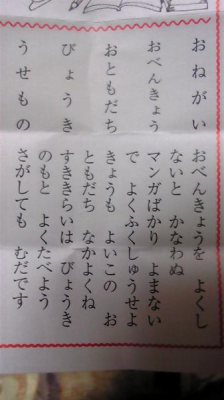 おねがい おべんきょうを よくし
ないと かなわぬ
おべんきょう マンガばかり よまない
で よくふくしゅうせよ
おともだち きょうも よいこの お
ともだち なかよくね
びょうき すききらいは びょうき
のもと よくたべよう
うせもの さがしても むだです